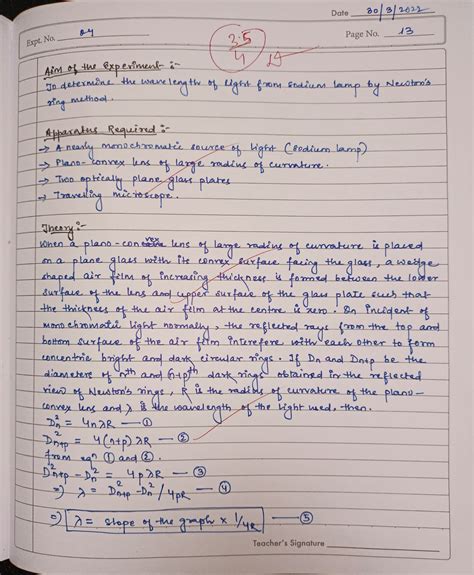 Date 30/3/2022
Expt. No. 04
Page No. 13
3.5
4
Aim of the Experiment :-
To determine the wavelength of light from sodium lamp by Newton's
ring method.
Apparatus Required :-
→ A nearly monochromatic source of light (sodium lamp)
→ Plano-convex lens of large radius of curvature.
→ Two optically plane glass plates
→ Travelling microscope.
Theory :-
When a plano-convex lens of large radius of curvature is placed
on a plane glass with its convex surface facing the glass, a wedge
shaped air film of increasing thickness is formed between the lower
surface of the lens and upper surface of the glass plate such that
the thickness of the air film at the centre is zero. On incident of
monochromatic light normally, the reflected rays from the top and
bottom surface of the air film interefere with each other to form
concentric bright and dark circular rings. If Dn and Dn+p be the
diameters of nth and (n+p)th dark rings obtained in the reflected
view of Newton's rings, R is the radius of curvature of the plano-
convex lens and λ is the wavelength of the light used, then.
D²n = 4nλR — ①
D²n+p = 4(n+p)λR — ②
from eqn ① and ②.
D²n+p - D²n = 4pλR — ③
⇒ λ = D²n+p - D²n / 4pR — ④
⇒ λ = slope of the graph × 1/4R — ⑤
Teacher's Signature